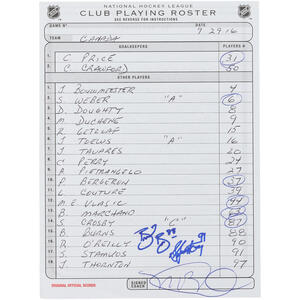 NATIONAL HOCKEY LEAGUE
CLUB PLAYING ROSTER
SEE REVERSE FOR INSTRUCTIONS
GAME NO.
DATE 9 29 16
TEAM CANADA
GOALKEEPERS PLAYERS #
1 C PRICE 31
2 C. CRAWFORD 50
PLAYERS #
1 J BOUWMEESTER 4
2 S WEBER "A" 6
3 D. DOUGHTY 8
4 M DUCHENE 9
5 R GETZLAF 15
6 J TOEWS "A" 16
7 J TAVARES 20
8 C PERRY 24
9 A PIETRANGELO 27
10 P BERGERON 37
11 L COUTURE 39
12 M.E. VLASIC 44
13 B. MARCHAND 63
14 S CROSBY "C" 87
15 B BURNS 88
16 R. O'REILLY 90
17 S. STAMKOS 91
18 J. THORNTON 97
ORIGINAL: OFFICIAL SCORER
SIGNED COACH